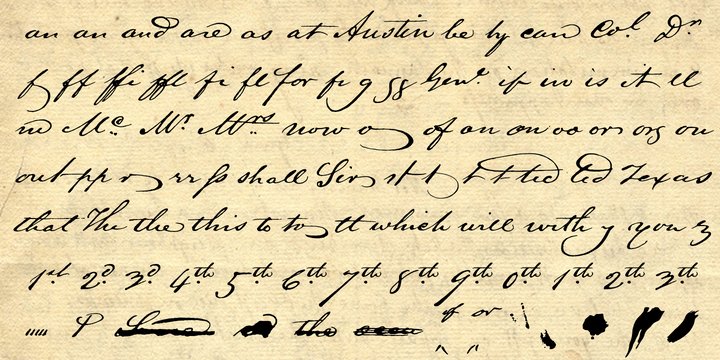 an an and are as at Austin be by can Col. Dr.
f ff ffi ffl fi fl for fr g gg Genl. if in is it ll
m Mc. Mr. Mrs. now o of on on oo or org ou
out pp r rr ss shall Sir st t t tt ted ted Texas
that The the this to to tt which will with y you z
1st 2d 3d 4th 5th 6th 7th 8th 9th 0th 1th 2th 3th
P the of or